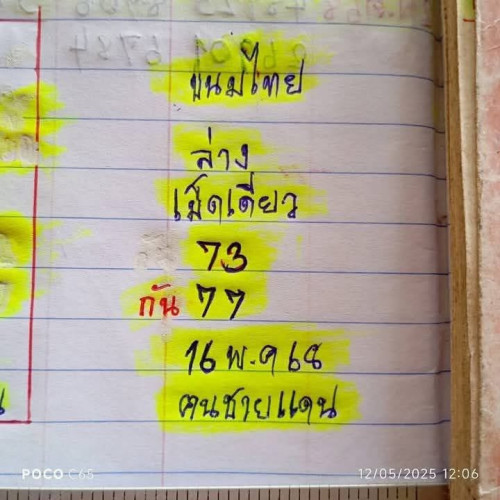 ขนมไทย
ล่าง
เม็ดเดียว
73
กัน 77
16 พ.ค 68
คนชายแดน
POCO C65
12/05/2025 12:06